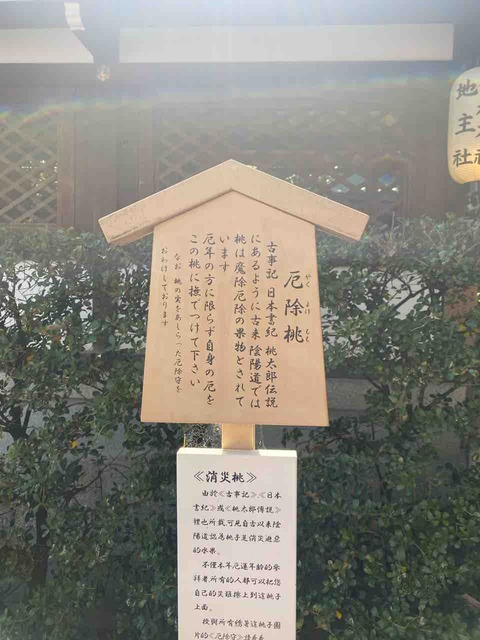 厄除桃
やく よけ もも
古事記 日本書紀 桃太郎伝説
にあるように古来 陰陽道では
桃は魔除厄除の果物とされて
います
厄年の方に限らず自身の厄を
この桃に撫でつけて下さい
なお 桃の実をあしらった厄除守を
おわけしております
地主社
《消災桃》
由於《古事記》、《日本
書紀》或《桃太郎傳說》
裡也所載,可見自古以來陰
陽道認為桃子是消災避惡
的水果。
不僅本年厄運年齡的參
拜者,所有的人都可以把您
自己的災難擦上到這桃子
上面。
授與所有繡著這桃子圖
片的《厄除守》